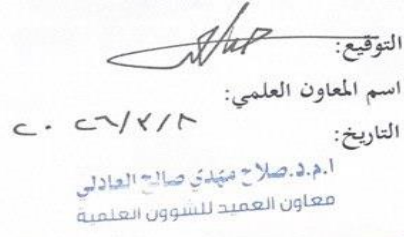 التوقيع:
اسم المعاون العلمي:
التاريخ: ٢٠٢٦/٣/٨
ا.م.د.صلاح مهدي صالح العادلي
معاون العميد للشؤون العلمية